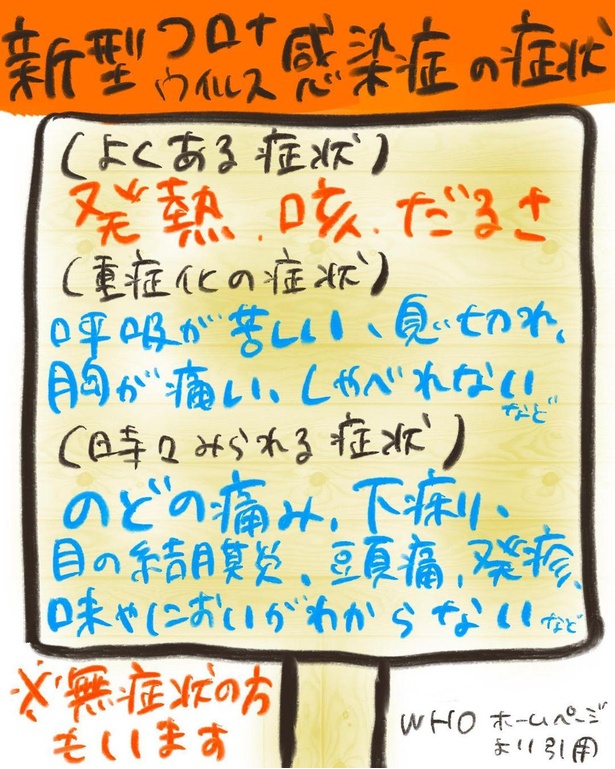 新型コロナウイルス感染症の症状
(よくある症状)
発熱、咳、だるさ
(重症化の症状)
呼吸が苦しい、息切れ、
胸が痛い、しゃべれないなど
(時々みられる症状)
のどの痛み、下痢、
目の結膜炎、頭痛、発疹、
味やにおいがわからないなど
※無症状の方
もいます
WHO ホームページ
より引用